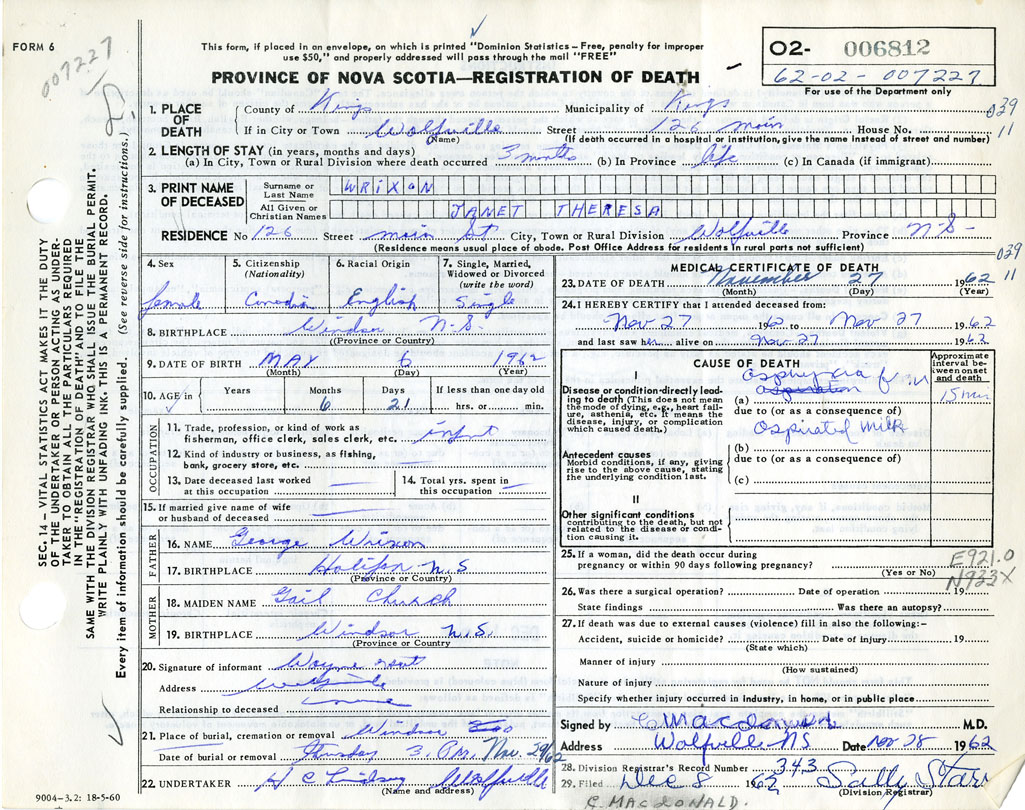 FORM 6
007227
This form, if placed in an envelope, on which is printed "Dominion Statistics – Free, penalty for improper
use $50," and properly addressed will pass through the mail "FREE"
PROVINCE OF NOVA SCOTIA—REGISTRATION OF DEATH
O2- 006812
62-02-007227
For use of the Department only
1. PLACE OF DEATH
County of Kings Municipality of Kings
039
11
If in City or Town Wolfville Street 126 Main House No.
(Name) (If death occurred in a hospital or institution, give the name instead of street and number)
2. LENGTH OF STAY (in years, months and days)
(a) In City, Town or Rural Division where death occurred 3 months (b) In Province life (c) In Canada (if immigrant)
3. PRINT NAME OF DECEASED
Surname or Last Name WRIXON
All Given or Christian Names JANET THERESA
RESIDENCE No 126 Street Main St City, Town or Rural Division Wolfville Province N.S-
(Residence means usual place of abode. Post Office Address for residents in rural parts not sufficient)
4. Sex female
5. Citizenship (Nationality) Canadian
6. Racial Origin English
7. Single, Married, Widowed or Divorced (write the word) Single
8. BIRTHPLACE Windsor N.S.
(Province or Country)
9. DATE OF BIRTH MAY 6 1962
(Month) (Day) (Year)
10. AGE in Years Months Days If less than one day old
6 21 hrs. or min.
OCCUPATION
11. Trade, profession, or kind of work as
fisherman, office clerk, sales clerk, etc. infant
12. Kind of industry or business, as fishing,
bank, grocery store, etc. —
13. Date deceased last worked
at this occupation —
14. Total yrs. spent in
this occupation —
15. If married give name of wife
or husband of deceased —
FATHER
16. NAME George Wrixon
17. BIRTHPLACE Halifax N.S
(Province or Country)
MOTHER
18. MAIDEN NAME Gail Church
19. BIRTHPLACE Windsor N.S.
(Province or Country)
20. Signature of informant Wayne
Address Wolfville
Relationship to deceased
21. Place of burial, cremation or removal Windsor
Date of burial or removal Thursday 3. P.M. Nov. 29/62
22. UNDERTAKER H C Lindsay Wolfville
(Name and address)
9004-3.2: 18-5-60
SEC. 14 – VITAL STATISTICS ACT MAKES IT THE DUTY
OF THE UNDERTAKER OR PERSON ACTING AS UNDER-
TAKER TO OBTAIN ALL THE PARTICULARS REQUIRED
IN THE "REGISTRATION OF DEATH" AND TO FILE THE
SAME WITH THE DIVISION REGISTRAR WHO SHALL ISSUE THE BURIAL PERMIT.
WRITE PLAINLY WITH UNFADING INK. THIS IS A PERMANENT RECORD.
Every item of information should be carefully supplied. (See reverse side for instructions.)
MEDICAL CERTIFICATE OF DEATH
039
11
23. DATE OF DEATH November 27 1962
(Month) (Day) (Year)
24. I HEREBY CERTIFY that I attended deceased from:
Nov 27 1962 to Nov 27 1962
and last saw her alive on Nov 27 1962
CAUSE OF DEATH
Approximate interval between onset and death
I
Disease or condition directly leading to death (This does not mean the mode of dying, e.g., heart failure, asthenia, etc. It means the disease, injury, or complication which caused death.)
asphyxia from
(a) aspiration
15 min
due to (or as a consequence of)
aspirated milk
Antecedent causes
Morbid conditions, if any, giving rise to the above cause, stating the underlying condition last.
(b)
due to (or as a consequence of)
(c)
II
Other significant conditions
contributing to the death, but not related to the disease or condition causing it.
25. If a woman, did the death occur during
pregnancy or within 90 days following pregnancy?
(Yes or No)
E921.0
N933X
26. Was there a surgical operation? Date of operation 19
State findings Was there an autopsy?
27. If death was due to external causes (violence) fill in also the following:-
Accident, suicide or homicide? Date of injury 19
(State which)
Manner of injury
(How sustained)
Nature of injury
Specify whether injury occurred in industry, in home, or in public place
Signed by C MacDonald M.D.
Address Wolfville NS Date Nov 28 1962
28. Division Registrar's Record Number 343
29. Filed Dec 8 1962 Sally Starr
(Division Registrar)
C. MACDONALD.